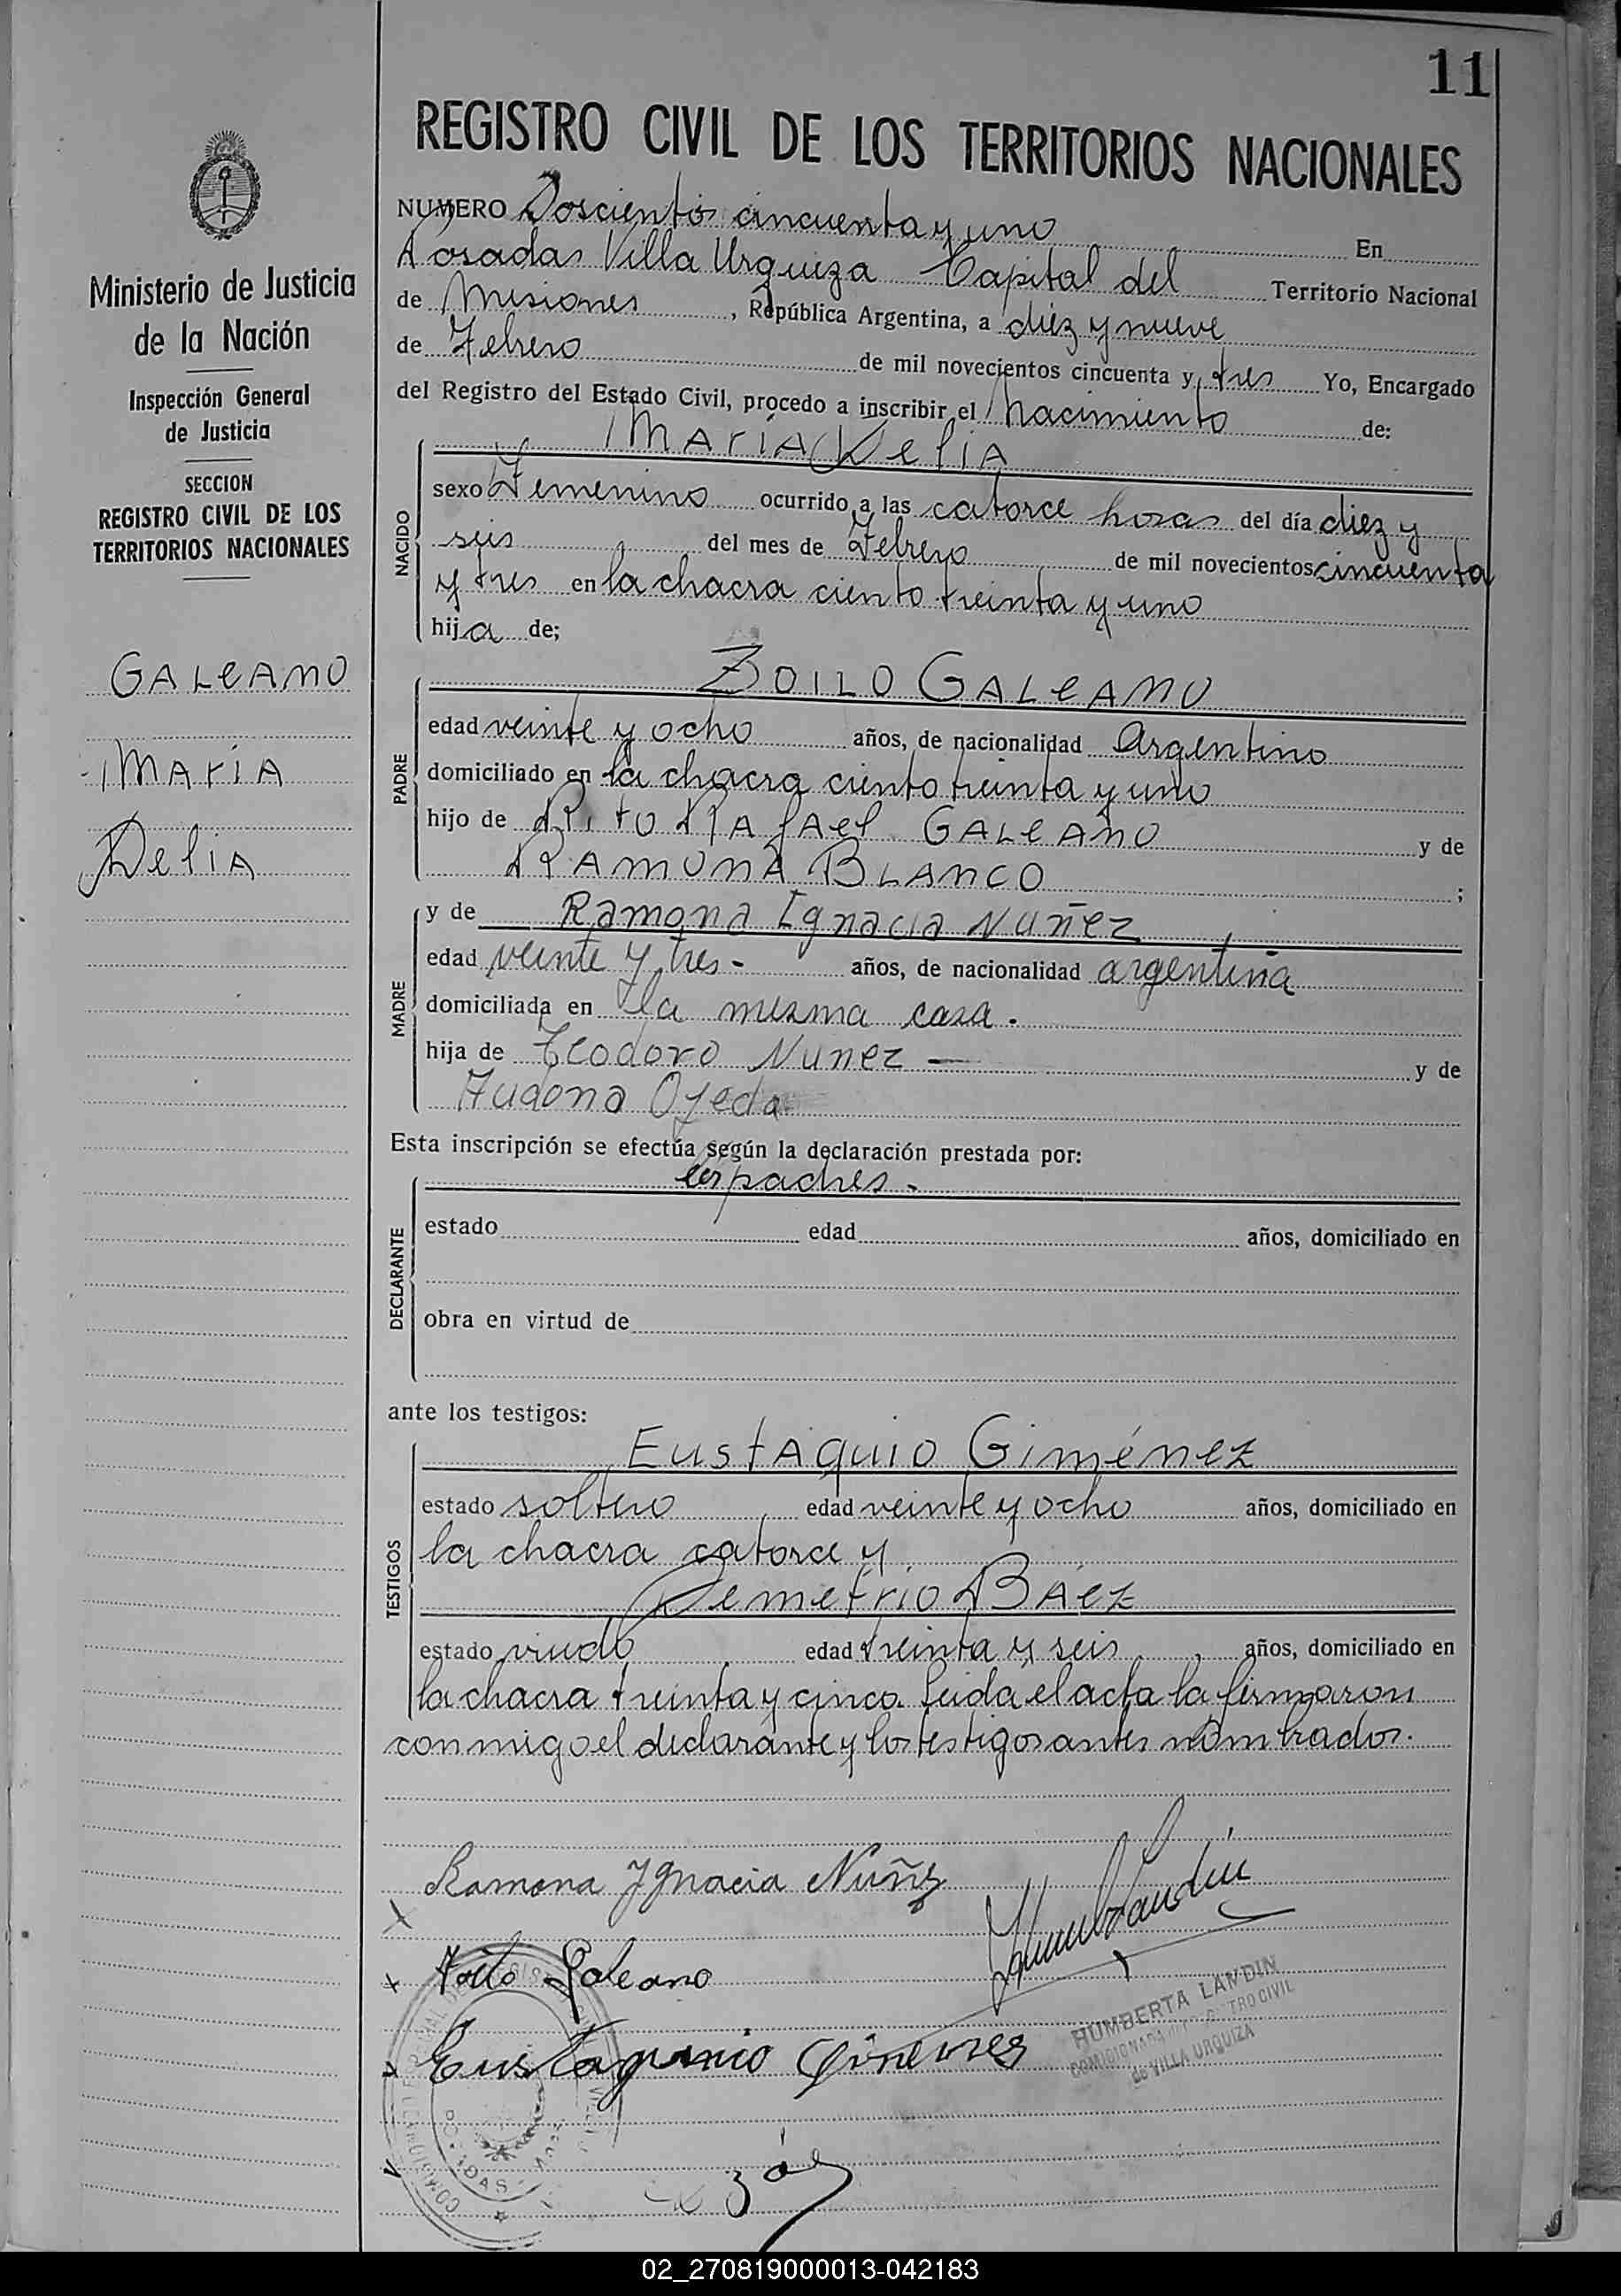 11
REGISTRO CIVIL DE LOS TERRITORIOS NACIONALES
Ministerio de Justicia
de la Nación
Inspección General
de Justicia
SECCION
REGISTRO CIVIL DE LOS
TERRITORIOS NACIONALES
GALEANO
MARIA
DELIA
NUMERO Doscientos cincuenta y uno En
Posadas Villa Urquiza Capital del Territorio Nacional
de Misiones, República Argentina, a diez y nueve
de Febrero de mil novecientos cincuenta y tres Yo, Encargado
del Registro del Estado Civil, procedo a inscribir el Nacimiento de:
María Delia
NACIDO
sexo Femenino ocurrido a las catorce horas del día diez y
seis del mes de Febrero de mil novecientos cincuenta
y tres en la chacra ciento treinta y uno
hija de;
PADRE
Zoilo Galeano
edad veinte y ocho años, de nacionalidad Argentino
domiciliado en la chacra ciento treinta y uno
hijo de Rito Rafael Galeano y de
Ramona Blanco ;
MADRE
y de Ramona Ignacia Nuñez
edad veinte y tres - años, de nacionalidad argentina
domiciliada en la misma casa.
hija de Teodoro Nunez — y de
Audona Ojeda
Esta inscripción se efectúa según la declaración prestada por:
los padres.
DECLARANTE
estado edad años, domiciliado en
obra en virtud de
ante los testigos:
TESTIGOS
Eustaquio Giménez
estado soltero edad veinte y ocho años, domiciliado en
la chacra catorce y
Demetrio Báez
estado viudo edad treinta y seis, años, domiciliado en
la chacra treinta y cinco. Leida el acta la firmaron
conmigo el declarante y los testigos antes nombrados.
Ramona Ygnacia Nuñez
Zoilo Galeano
Eustaquio Gimenes
HUMBERTA LANDIN
COMISIONADA REGISTRO CIVIL
de VILLA URQUIZA
02_270819000013-042183